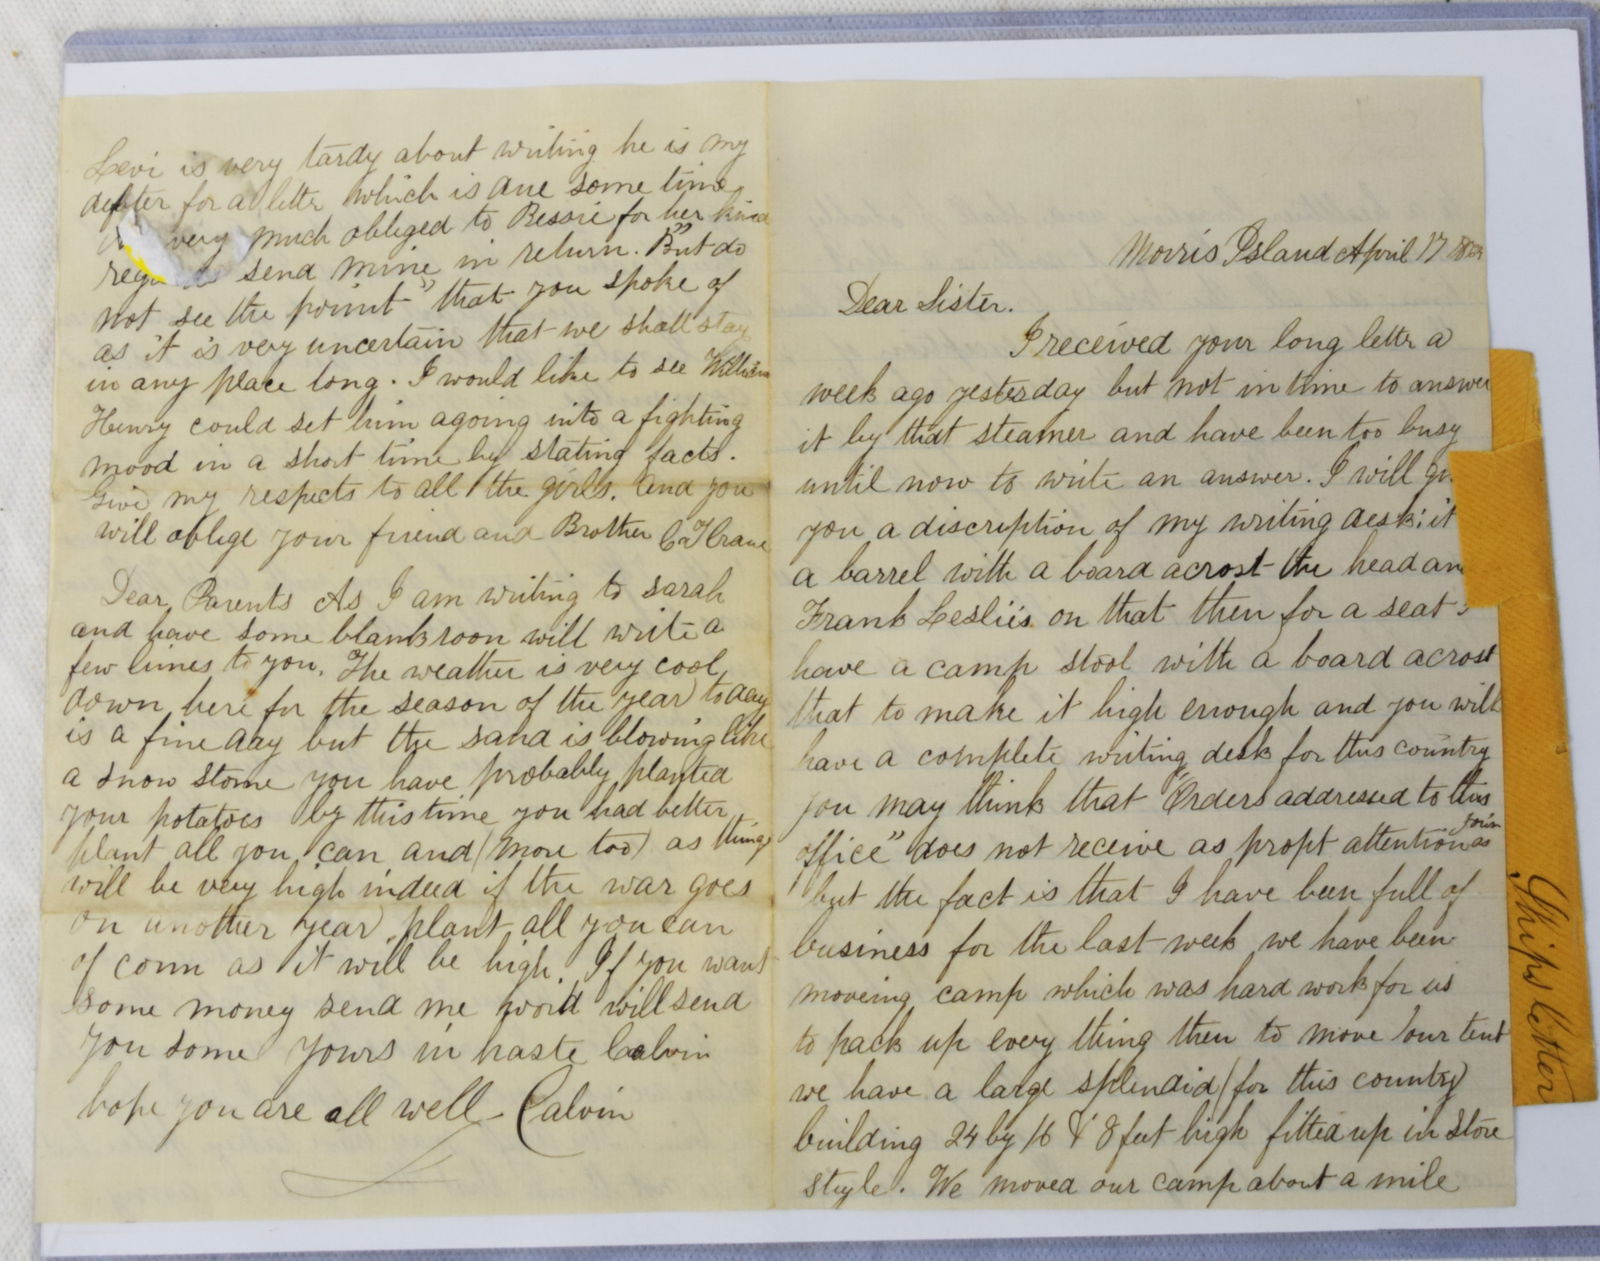 Levi is very tardy about writing he is my
debter for a letter which is due some time
very much obliged to Bessie for her kind
send mine in return. "But do
not see the point" that you spoke of
as it is very uncertain that we shall stay
in any place long. I would like to see William
Henry could set him agoing into a fighting
mood in a short time by stating facts.
Give my respects to all the girls. And you
will oblige your friend and Brother C T Crane
Dear Parents As I am writing to Sarah
and have some blank room will write a
few lines to you. The weather is very cool
down here for the season of the year today
is a fine day but the sand is blowing like
a snow storme you have probably planted
your potatoes by this time you had better
plant all you can and (more too) as things
will be very high indeed if the war goes
on another year, plant all you can
of corn as it will be high. If you want
some money send me word will send
you some yours in haste Calvin
hope you are all well Calvin
Morris Island April 17
Dear Sister.
I received your long letter a
week ago yesterday but not in time to answer
it by that steamer and have been too busy
until now to write an answer. I will
you a discription of my writing desk: it
a barrel with a board acrost the head and
Frank Leslie's on that then for a seat I
have a camp stool with a board acrost
that to make it high enough and you will
have a complete writing desk for this country
you may think that "Orders addressed to this
office" does not receive as propt attention as yours
but the fact is that I have been full of
business for the last week we have been
moveing camp which was hard work for us
to pack up every thing then to move our tent
we have a large splendid (for this country)
building 24 by 16 & 8 feet high fitted up in store
style. We moved our camp about a mile
Ship's letter